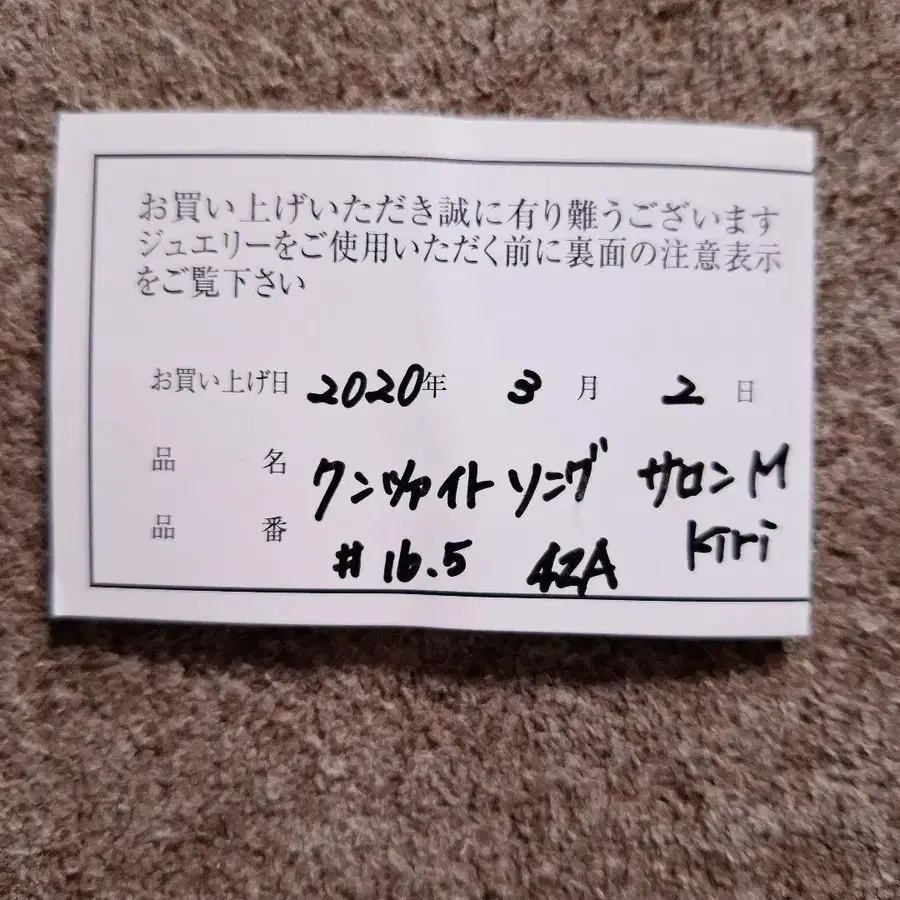 お買い上げいただき誠に有り難うございます
ジュエリーをご使用いただく前に裏面の注意表示
をご覧下さい
お買い上げ日 2020年 3月 2日
品名 クンツァイト リング サロンM
品番 #16.5 42A Kiri